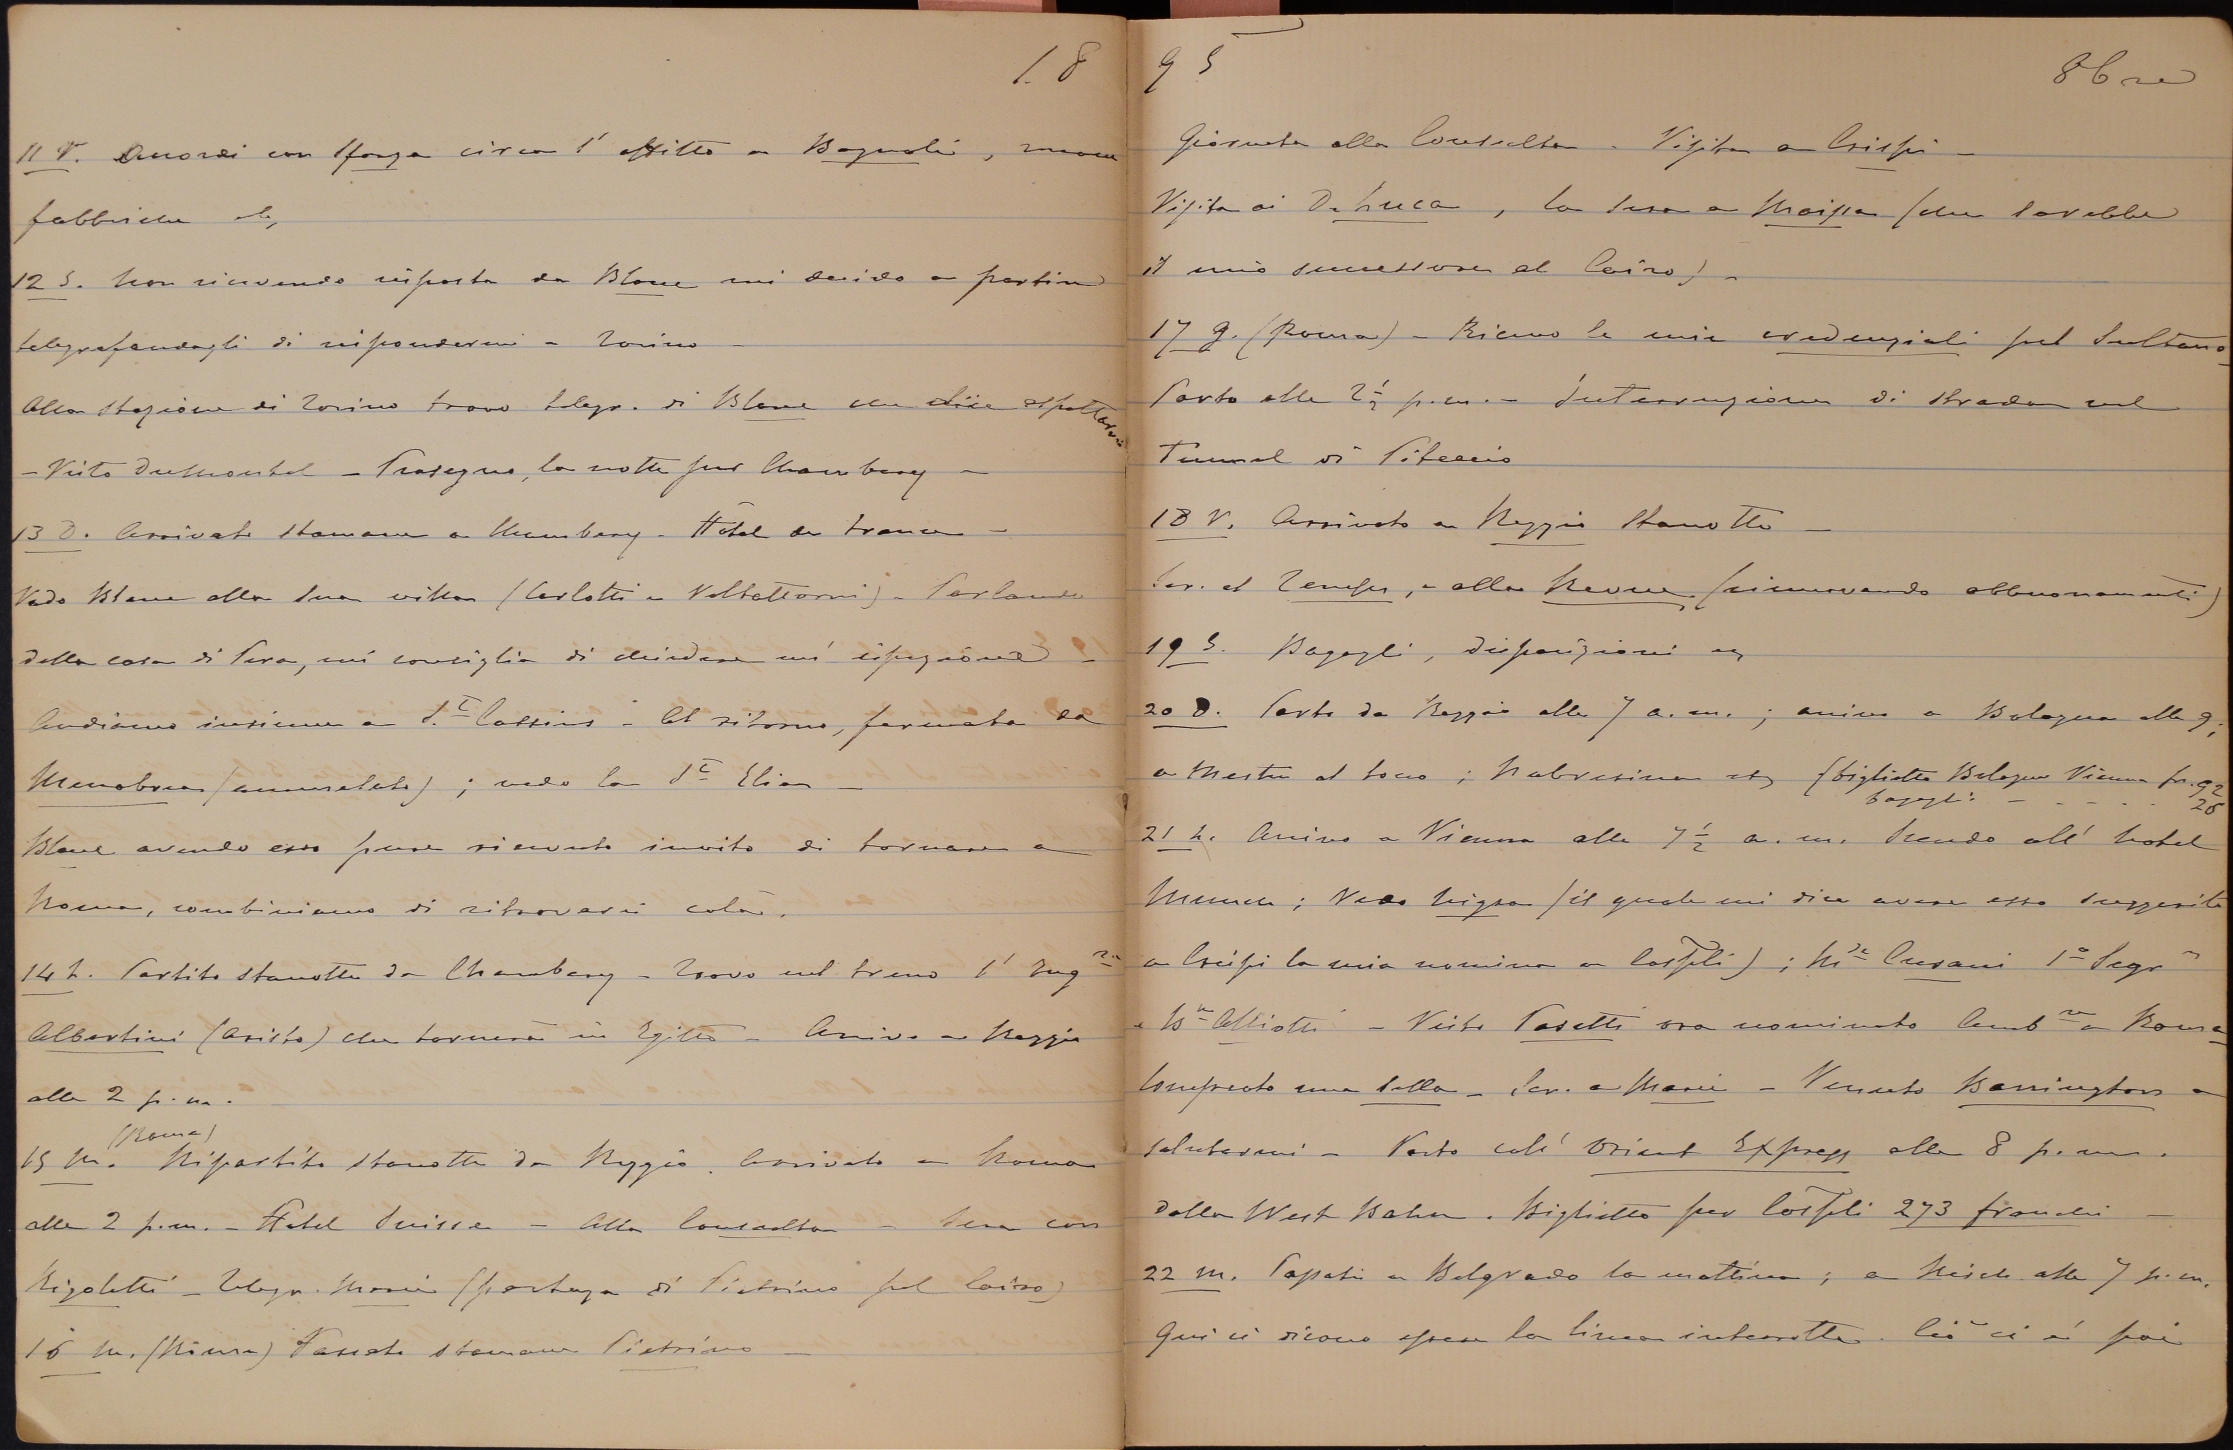 18
11 V. Accordi con Sforza circa l'affitto a Bagnoli, nuove
fabbriche etc.
12 S. Non ricevendo risposta da Blanc mi decido a partire
telegrafandogli di rispondermi a Torino -
Alla stazione di Torino trovo telegr. di Blanc che dice aspettarmi
- Visto Dumontel - Proseguo, la notte per Chambery -
13 D. Arrivato stamane a Chambery - Hôtel de France -
Vado Blanc alla sua villa (Carlotti e Valtattorni) - Parlando
della casa di Pera, mi consiglia di chiedere un'ispezione -
Andiamo insieme a S.t Cassins - Al ritorno, fermata da
Menabrea (ammalato); vedo la S.t Elia -
Blanc avendo esso pure ricevuto invito di tornare a
Roma, combiniamo di ritrovarci colà.
14 L. Partito stanotte da Chambery - Trovo nel treno l'Ing.re
Albertini (Aristo) che tornerà in Egitto - Arrivo a Reggio
alle 2 p.m.
(Roma)
15 M. Ripartito stanotte da Reggio. Arrivato a Roma
alle 2 p.m. - Hotel Suisse - Alla Consulta - Sera con
Rigoletti - Telegr. Marie (partenza di Pietrino pel Cairo)
16 M. (Roma) Passato stamane Pietrino -
95
8bre
Giornata alla Consulta - Visita a Crispi -
Visita ai De Luca, la sera a Maissa (che sarebbe
il mio successore al Cairo) -
17 G. (Roma) - Ricevo le mie credenziali pel Sultano -
Parto alle 2 1/2 p.m. - Interruzione di strada nel
Tunnel di Piteccio
18 V. Arrivato a Reggio stanotte -
Scr. al Temps, e alla Revue (rinnovando abbuonamenti)
19 S. Bagagli, disposizioni etc
20 D. Parto da Reggio alle 7 a.m.; arrivo a Bologna alle 9;
a Mestre al tocco; Nabresina etc (biglietto Bologna Vienna fr. 92
bagagli - - - - - 26
21 L. Arrivo a Vienna alle 7 1/2 a.m. Scendo all'hotel
Munch; Vedo Nigra (il quale mi dice avere esso suggerito
a Crispi la mia nomina a Cospli); M.se Cusani 1° Segr°
e B.ne Alliotti - Visto Pasetti ora nominato Amb.re a Roma -
Comprato una sella - Scr. a Marie - Venuto Barrington a
salutarmi - Parto coll'Orient Express alle 8 p.m.
dalla West Bahn. Biglietto per Cospli 273 franchi -
22 M. Passati a Belgrado la mattina; a Nisch alle 7 p.m.
Qui ci dicono essere la linea interrotta. Ciò ci è poi